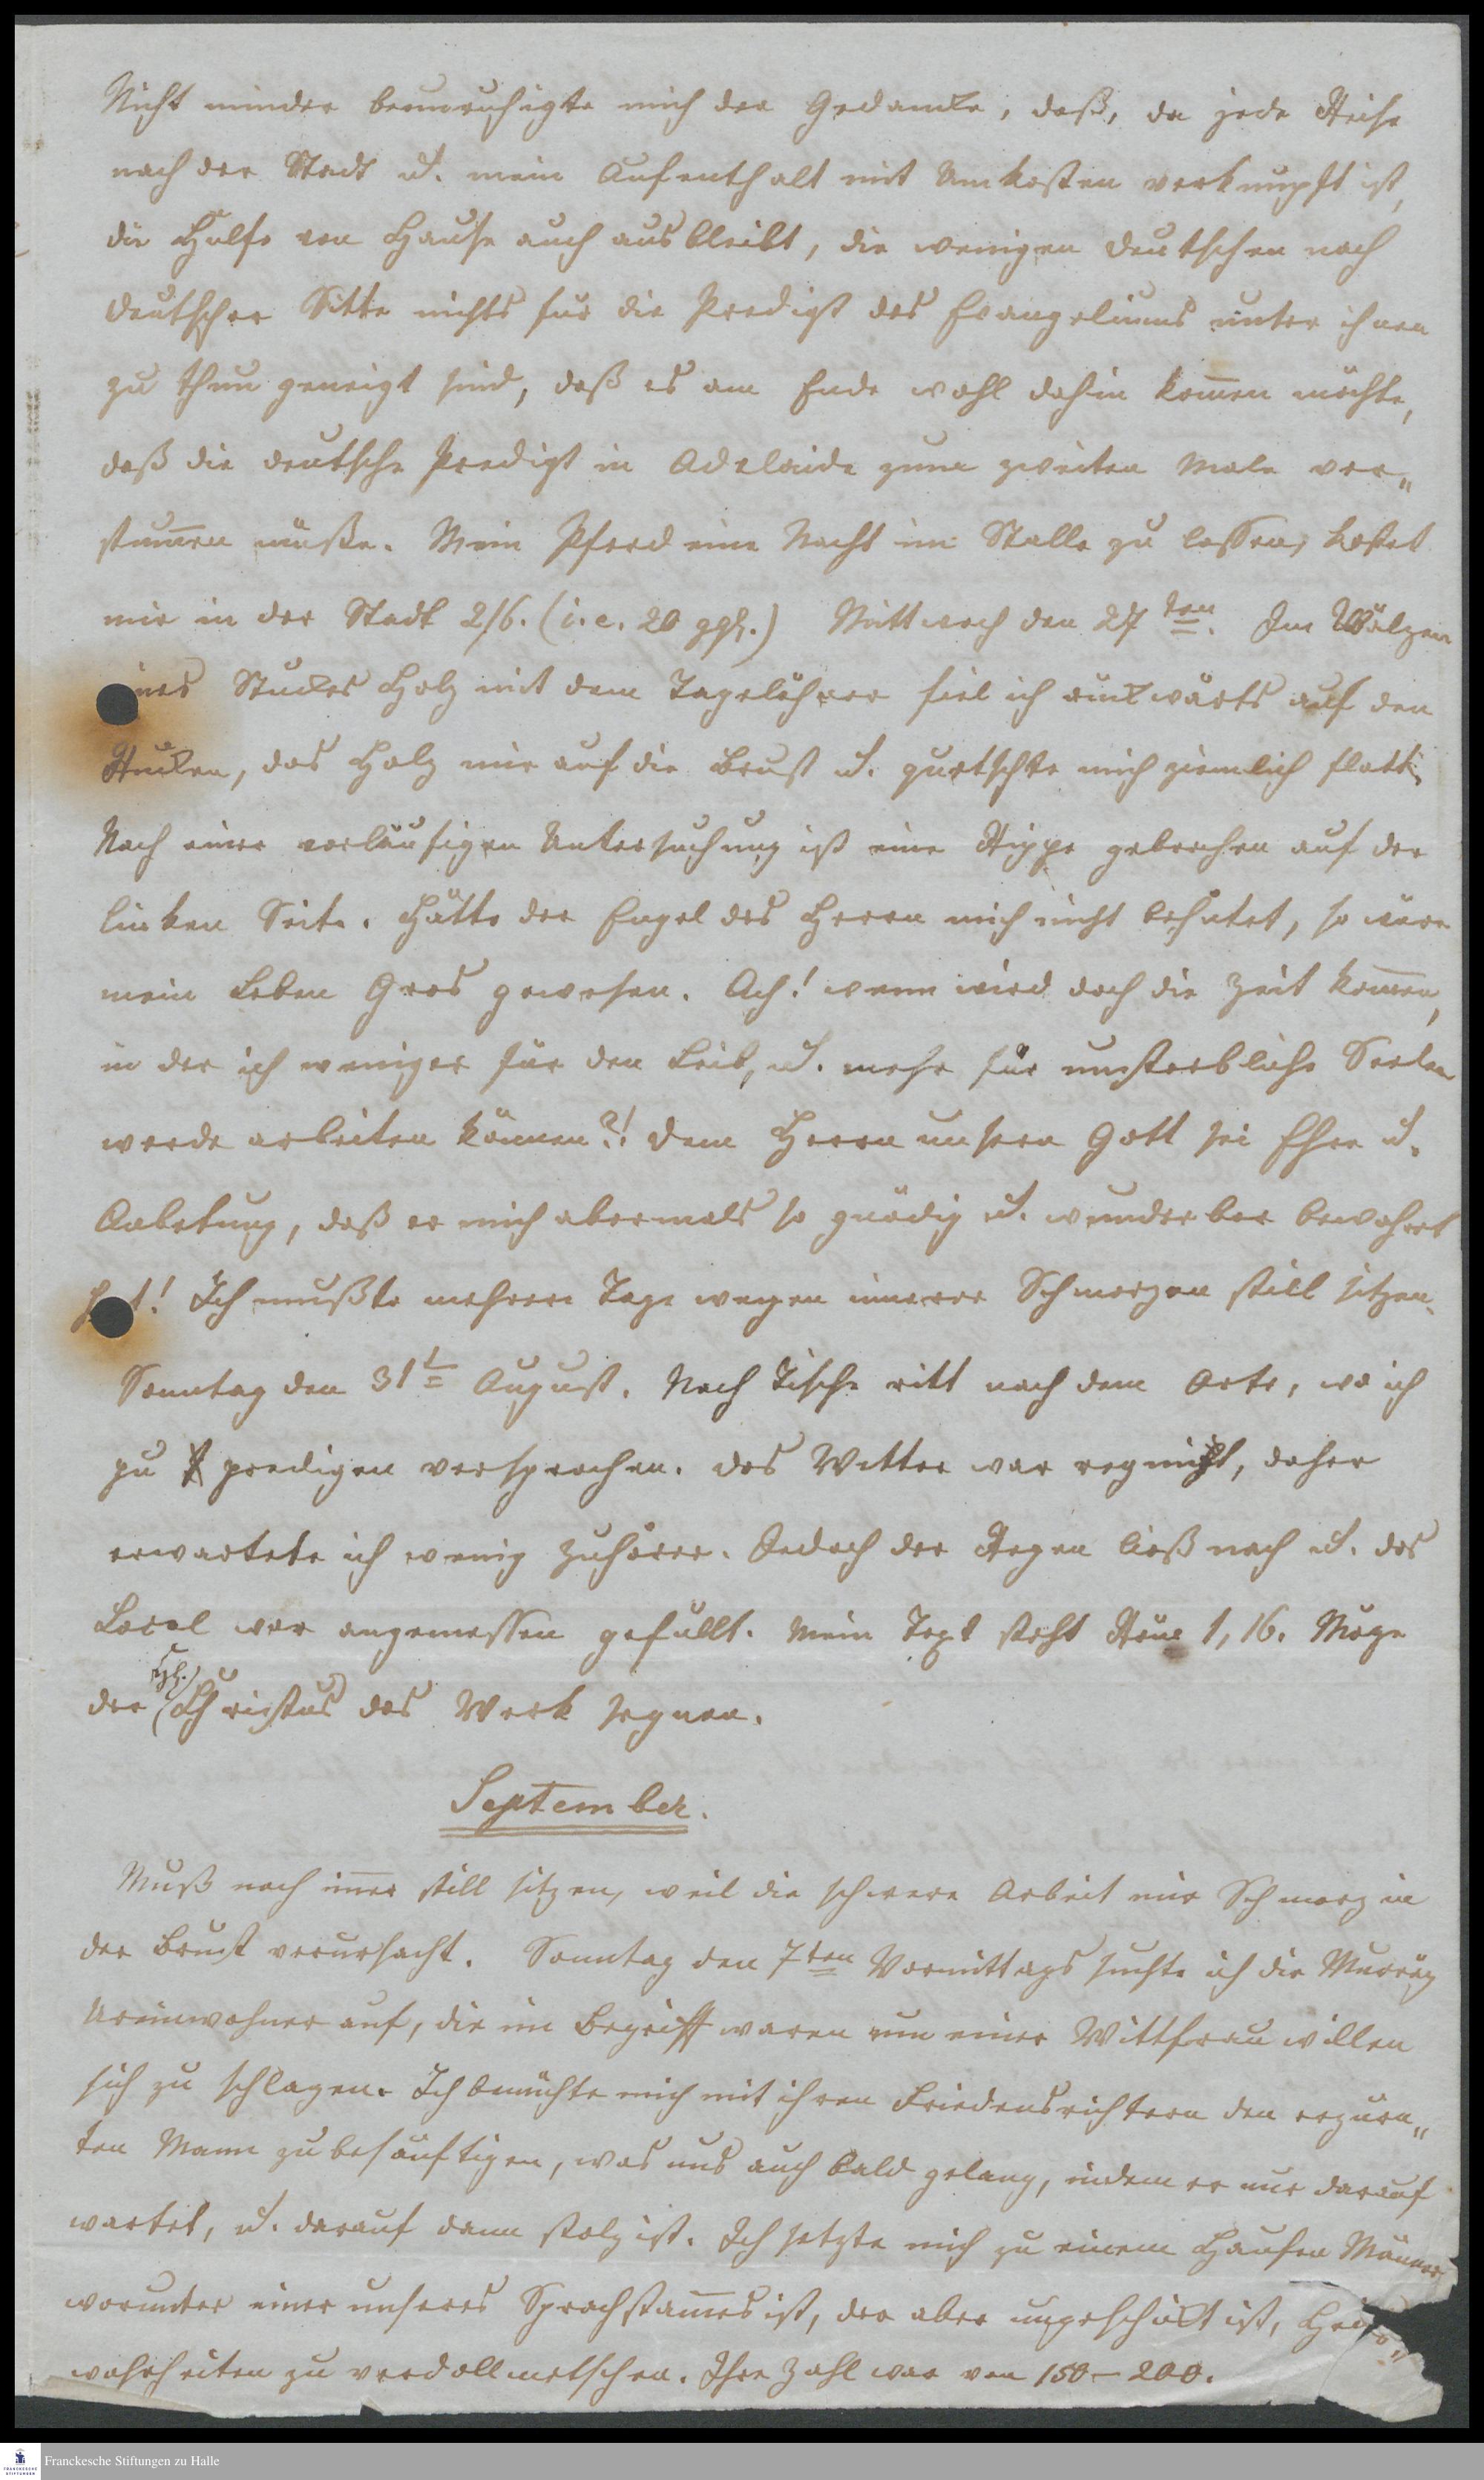 Nicht minder beunruhigte mich der Gedancke, daß, da jede Reise
nach der Stadt u. mein Aufenthalt mit Unkosten verknupft ist,
die Hülfe von Hause auch ausbleibt, die wenigen Deutschen nach
deutscher Sitte nichts für die Predigt des Evangeliums unter ihnen
zu thun geneigt sind, daß es am Ende wohl dahin kom̄en möchte,
daß die deutsche Predigt in Adelaide zum zweiten Male ver„
stum̄en müße. Mein Pferd eine Nacht im Stalle zu laßen, kostet
mir in der Stadt 2/6. (i.e. 20 ggl.) Mittwoch den 27ten. Im Wälzen
eines Stückes Holz mit dem Tagelöhner fiel ich rückwärts auf den
Rücken, das Holz mir auf die Brust u. quetschte mich ziemlich platt.
Nach einer vorläufigen Untersuchung ist eine Rippe gebrochen auf der
linken Seite. Hätte der Engel des Herrn mich nicht behütet, so wäre
mein Leben Gras gewesen. Ach! wenn wird doch die Zeit kom̄en,
in der ich weniger für den Leib, u. mehr für unsterbliche Seelen
werde arbeiten können?! Dem Herrn unsern Gott sei Ehre u.
Anbetung, daß er mich abermals so gnädig u. wunderbar bewahrt
hat! Ich mußte mehrere Tage wegen innerer Schmerzen still sitzen.
Sonntag den 31t August. Nach Tische ritt nach dem Orte, wo ich
zu predigen versprochen. Das Wetter war regnicht, daher
erwartete ich wenig Zuhörer. Jedoch der Regen ließ nach u. das
Local war angemessen gefüllt. Mein Text steht Röm 1, 16. Möge
der Christus das Werk segnen.
September.
Muß noch im̄er still sitzen, weil die schwere Arbeit mir Schmerz in
der Brust verursacht. Sonntag den 7ten Vormittags suchte ich die Murray
Ureinwohner auf, die im Begriff waren um einer Wittfrau willen
sich zu schlagen. Ich bemühte mich mit ihren Friedensrichtern den erzürn„
ten Mann zu besänftigen, was uns auch bald gelang, indem er nur darauf
wartet, u. darauf dann stolz ist. Ich setzte mich zu einem Haufen Männer
worunter einer unseres Sprachstam̄es ist, der aber ungeschickt ist, Heils„
wahrheiten zu verdollmetschen. Ihre Zahl war von 150–200.
Franckesche Stiftungen zu Halle
FRANCKESCHE
STIFTUNGEN